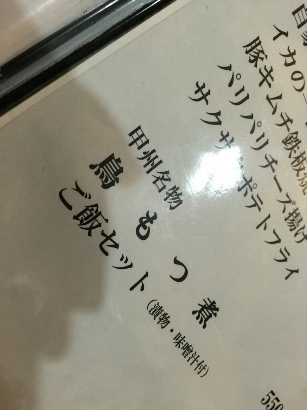 自家
イカの一
豚キムチ鉄板焼
パリパリチーズ揚げ
サクサクポテトフライ
甲州名物
鳥もつ煮
ご飯セット（漬物・味噌汁付）
550